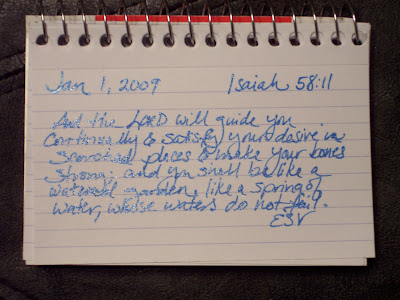 Jan 1, 2009 Isaiah 58:11
And the LORD will guide you
continually & satisfy your desire in
scorched places & make your bones
strong; and you shall be like a
watered garden, like a spring of
water, whose waters do not fail.
ESV